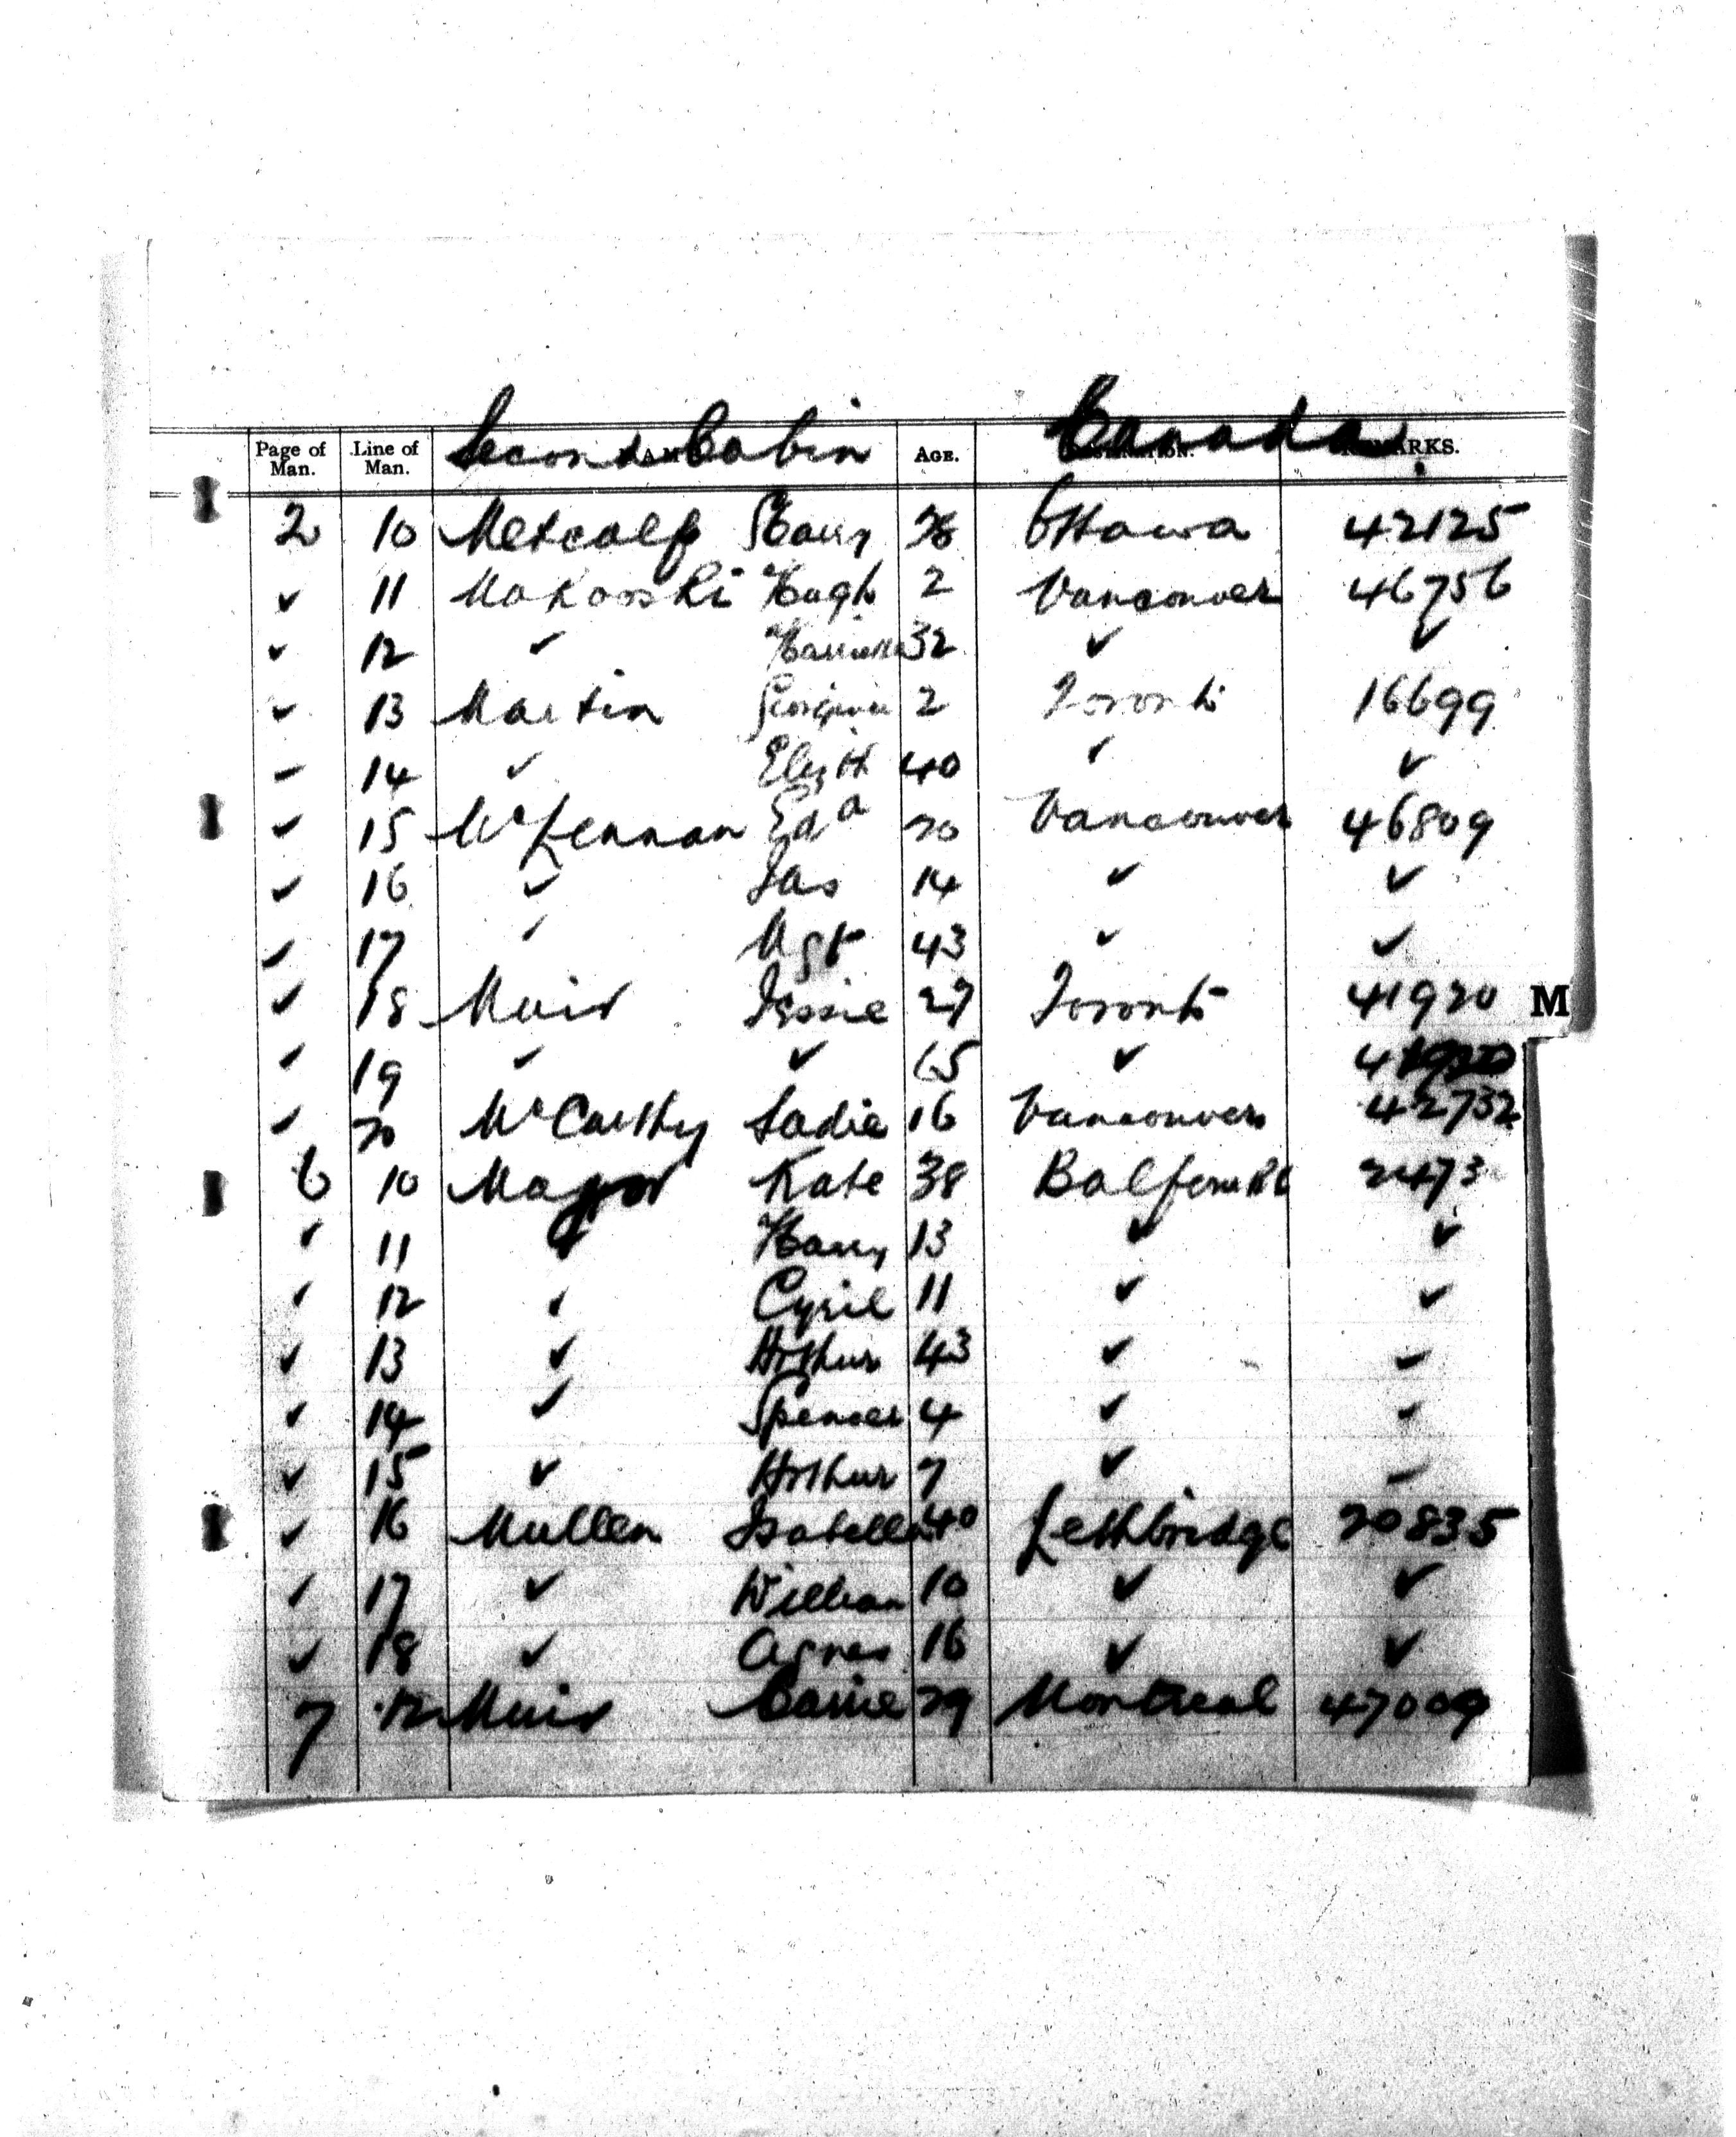 Second Cabin Canada
Page of Man. Line of Man. NAME. AGE. DESTINATION. REMARKS.
2 10 Metcalf Harry Ottawa 42125
✓ 11 Makovski Hugh 2 Vancouver 46756
✓ 12 ✓ 32 ✓ ✓
✓ 13 Martin Georgina 2 Toronto 16699
✓ 14 ✓ Elizth 40 ✓ ✓
✓ 15 McLennan Eda 20 Vancouver 46809
✓ 16 ✓ Jas 14 ✓ ✓
✓ 17 ✓ Mgt 43 ✓ ✓
✓ 18 Muir Jessie 27 Toronto 41920
M
✓ 19 ✓ ✓ 65 ✓
✓ 20 McCarthy Sadie 16 Vancouver 42732
6 10 Major Kate 38 Balfour BC 2473
✓ 11 ✓ Harry 13 ✓ ✓
✓ 12 ✓ Cyril 11 ✓ ✓
✓ 13 ✓ Arthur 43 ✓ ✓
✓ 14 ✓ Spencer 4 ✓ ✓
✓ 15 ✓ Arthur 7 ✓ ✓
✓ 16 Mullen Isabella 40 Lethbridge 20835
✓ 17 ✓ William 10 ✓ ✓
✓ 18 ✓ Agnes 16 ✓ ✓
7 12 Muir Carrie 29 Montreal 47009